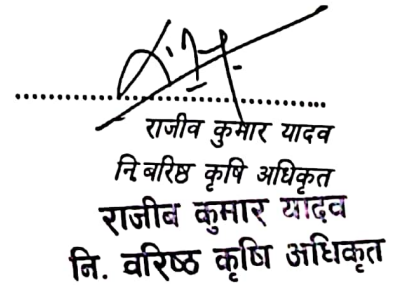 राजीव कुमार यादव
नि.बरिष्ठ कृषि अधिकृत
राजीब कुमार यादव
नि. वरिष्ठ कृषि अधिकृत